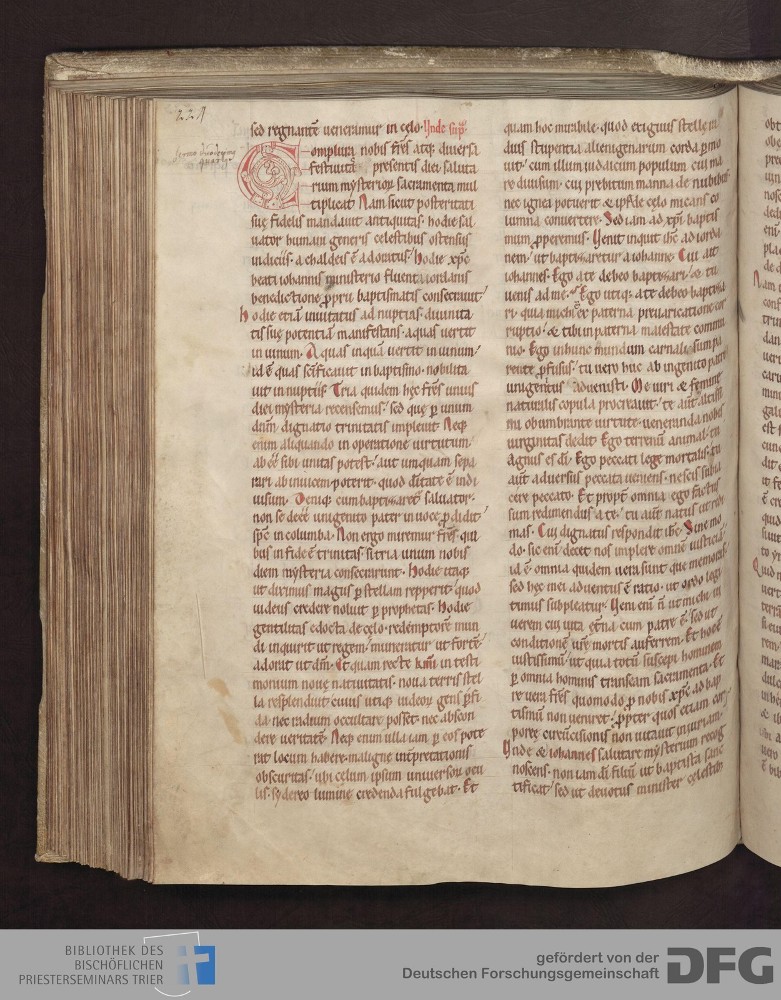 221
sed regnante ueneramur in celo. Vnde sup̅.
Complura nobis fr̅s atq; diuersa
festiuita presentis diei saluta
rium mysterioꝝ sacramenta mul
tiplicat. Nam sicut posteritati
suę fidelis mandauit antiquitas. hodie sal
uator humani generis celestibus ostensus
indiciis. a chaldeis ē adoratus. hodie xp̅c
beati iohannis ministerio fluenta iordanis
benedictione ꝓprii baptismatis consecrauit.
hodie etiā inuitatus ad nuptias. diuinita
tis suę potentiā manifestans. aquas uertit
in uinum. Aquas inquā uertit in uinum.
id ē quas sc̅ificauit in baptismo. nobilita
uit in nuptiis. Tria quidem hęc fr̅s unius
diei mysteria recensemus. sed quę ꝑ unum
dn̅m. dignatio trinitatis impleuit. Neq;
enim aliquando in operatione uirtutum.
abēē sibi unitas potest. aut umquam sepa
rari ab inuicem poterit. quod diuitate ē indi
uisum. Deniq; cum baptizaret saluator.
non se deēē unigenito pater in uoce ꝓdidit.
sp̅c in columba. Non ergo miremur fr̅s qui
bus in fide ē trinitas. si tria unum nobis
diem mysteria consecrarunt. Hodie itaq;
ut diximus magus ꝑ stellam repperit. quod
iudeus credere noluit ꝑ prophetas. Hodie
gentilitas edocta de celo. redemptorē mun
di inquirit ut regem. muneratur ut fortē.
adorat ut dm̅. Et quam recte km̅i in testi
monium nouę natiuitatis. noua terris stel
la resplenduit. cuius utiq; iudeoꝝ gens ꝑfi
da. nec radium occultare posset. nec abscon
dere ueritatē. Neq; enim ulla iam ꝑ eos pote
rat locum habere. maligne int̅pretationis
obscuritas. ubi celum ipsum uniuersoꝝ ocu
lis. sydereo lumine credenda fulgebat. Et
quam hoc mirabile. quod exiguus stellę ra
dius stupentia alienigenarum corda ꝑmo
uit. cum illum iudaicum populum. cui ma
re diuisum. cui prebitum manna de nubibus.
nec ignea potuerit & ipsa de celo micans co
lumna conuertere. Sed iam ad xp̅i baptis
mum ꝓperemus. Venit inquit ih̅c ad iorda
nem. ut baptizaretur a iohanne. Cui ait
iohannes. Ego a te debeo baptizari. & tu
uenis ad me. Ego utiq; a te debeo baptiza
ri. quia michi ex paterna preuaricatione cor
ruptio. & tibi in paterna maiestate commu
nio. Ego in hunc mundum carnali sum pa
rente ꝓfusus. tu uero huc ab ingenito patre
unigenitus aduenisti. Me uiri & femine
naturalis copula procreauit. te aūt altissi
mi obumbrante uirtute. ueneranda nobis
uirginitas dedit. Ego terrenū animal. tu
agnus es di̅. Ego peccati lege mortalis. tu
aūt aduersus peccata ueniens. nescis subia
cere peccato. Et propt̅ omnia ego factus
sum redimendus a te. tu aūt natus ut redi
mas. Cui dignatus respondit ih̅c. Sine mo
do. sic eni̅ decet nos implere omnē iusticiā.
id ē omnia quidem uera sunt que memoras.
sed hęc mei aduentus ē ratio. ut ordo legi
timus subpleatur. Veni eni̅ n̅ ut michi ui
uerem cui uita et̅na cum patre ē. sed ut
conditionē ur̅e mortis auferrem. Et hoc ē
iustissimū. ut quia totū suscepi hominem
ꝑ omnia hominis transeam sacramenta. Et
re uera fr̅s quomodo ꝓ nobis xp̅c ad bap
tismū non ueniret. ꝓpter quos etiam cor
poreę circūcisionis non uitauit iniuriam.
Vnde & iohannes salutare mysterium recog
noscens. non iam di̅ filiū ut baptista sanc
tificat. sed ut deuotus minister celestib;
BIBLIOTHEK DES
BISCHÖFLICHEN
PRIESTERSEMINARS TRIER
gefördert von der
Deutschen Forschungsgemeinschaft
DFG